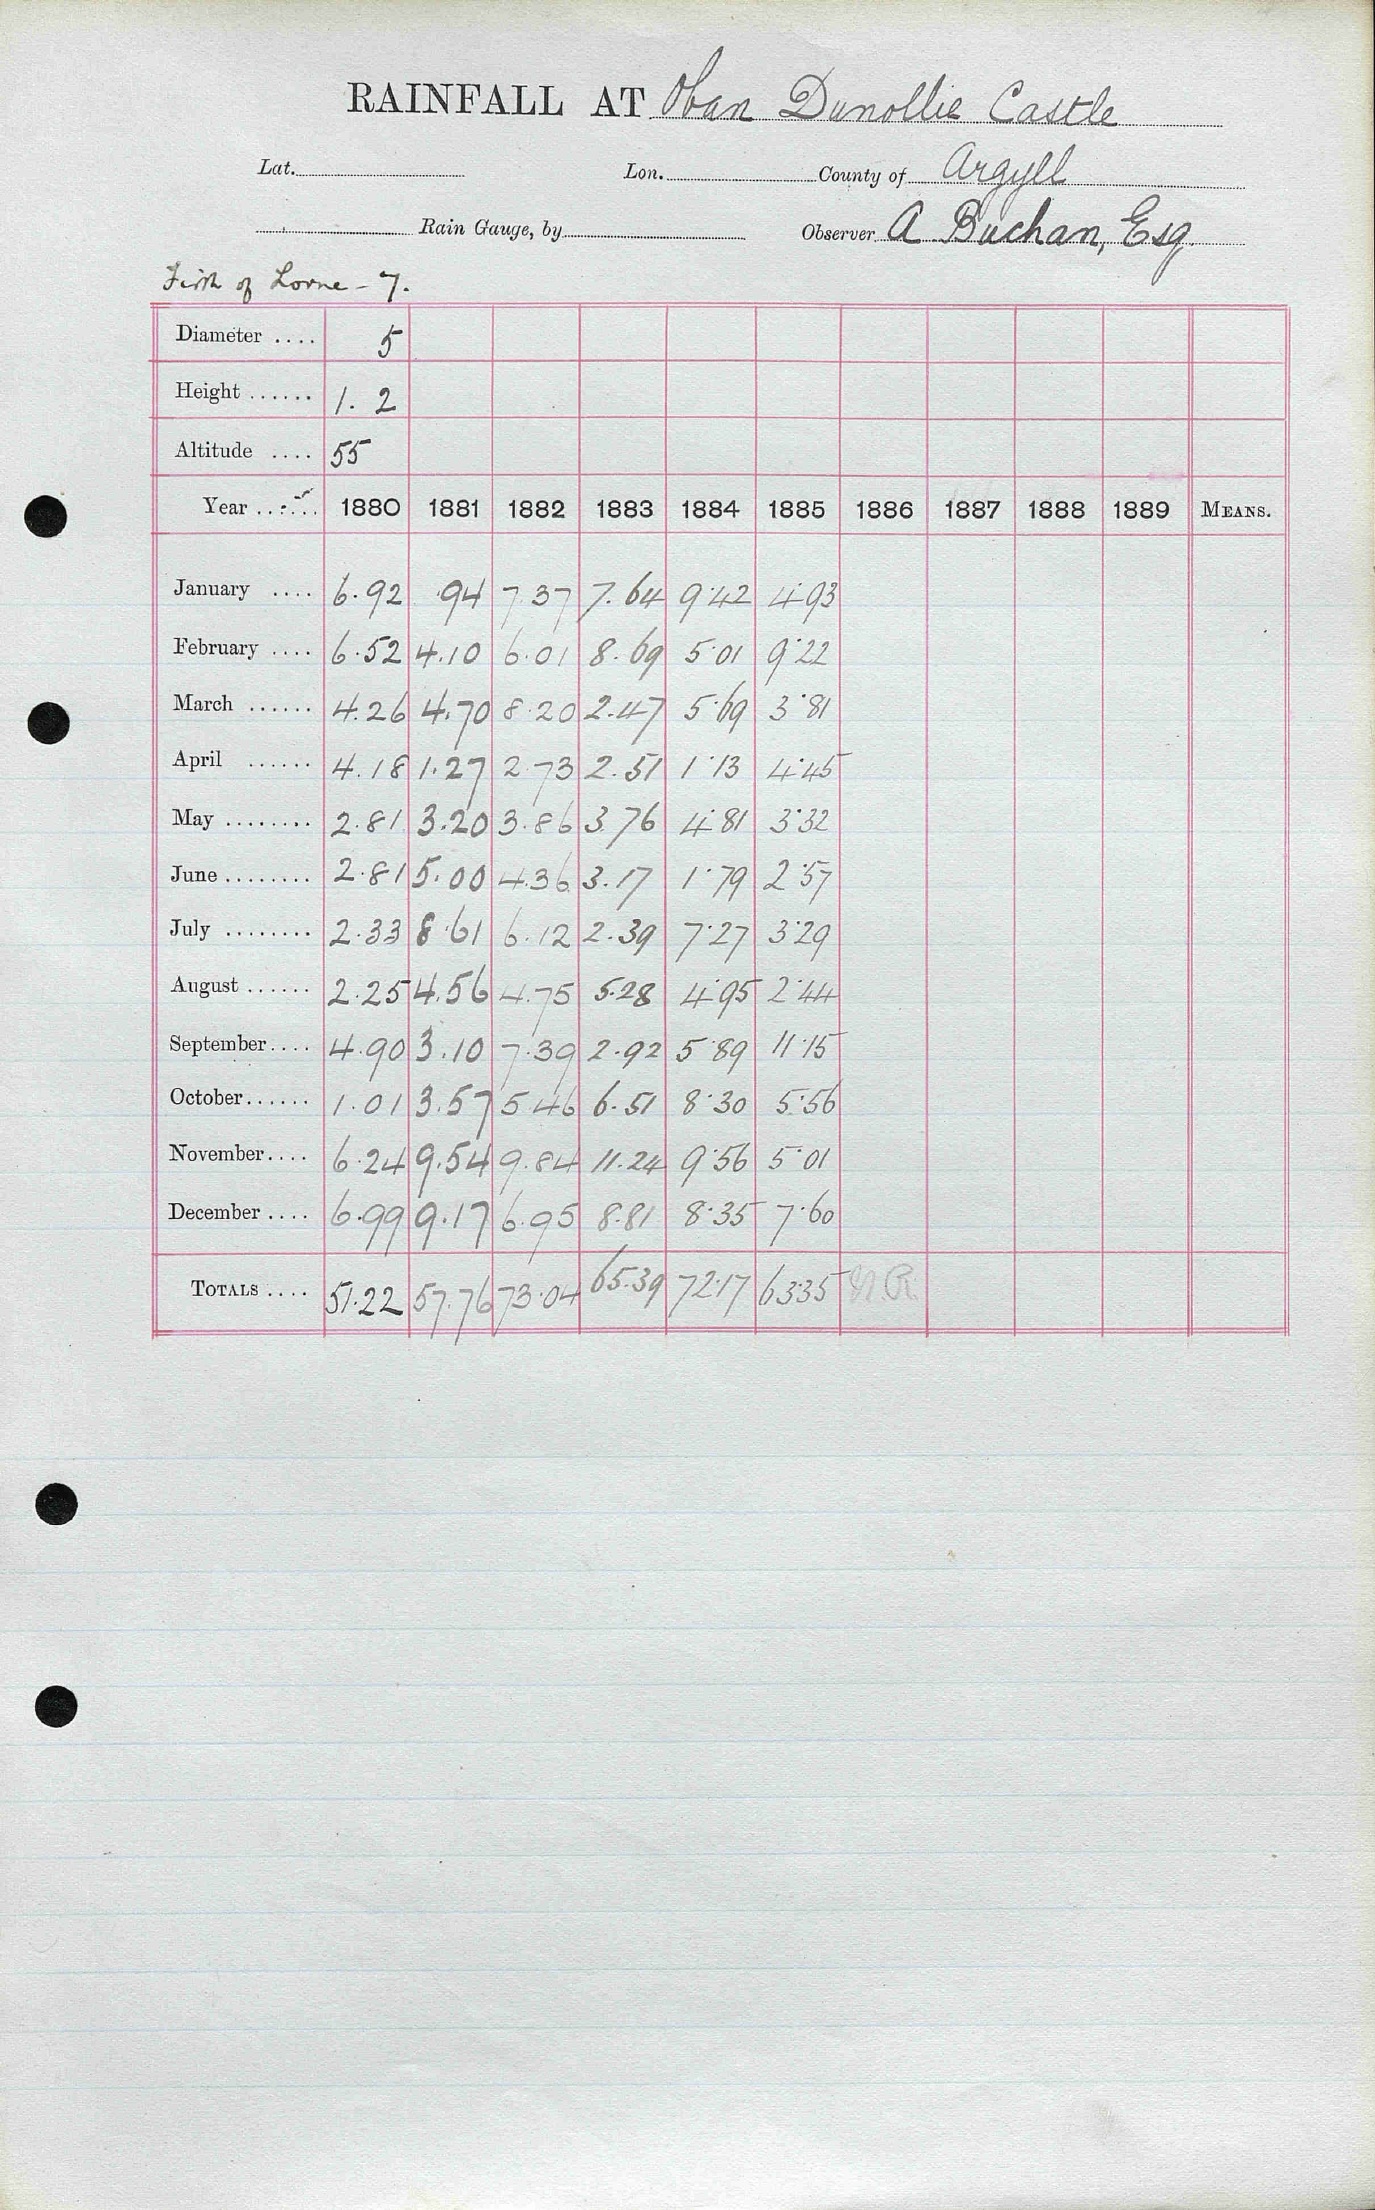 RAINFALL AT Oban Dunollie Castle
Lat. Lon. County of Argyll
Rain Gauge, by Observer A Buchan, Esq.
Firth of Lorne - 7.
Diameter .... 5
Height ...... 1. 2
Altitude .... 55
Year ...... 1880 1881 1882 1883 1884 1885 1886 1887 1888 1889 MEANS.
January .... 6.92 .94 7.37 7.64 9.42 4.93
February .... 6.52 4.10 6.01 8.69 5.01 9.22
March ...... 4.26 4.70 8.20 2.47 5.69 3.81
April ...... 4.18 1.27 2.73 2.51 1.13 4.45
May ........ 2.81 3.20 3.86 3.76 4.81 3.32
June ........ 2.81 5.00 4.36 3.17 1.79 2.57
July ........ 2.33 8.61 6.12 2.39 7.27 3.29
August ...... 2.25 4.56 4.75 5.28 4.95 2.44
September.... 4.90 3.10 7.39 2.92 5.89 11.15
October...... 1.01 3.57 5.46 6.51 8.30 5.56
November.... 6.24 9.54 9.84 11.24 9.56 5.01
December .... 6.99 9.17 6.95 8.81 8.35 7.60
TOTALS .... 51.22 57.76 73.04 65.39 72.17 63.35 N.R.